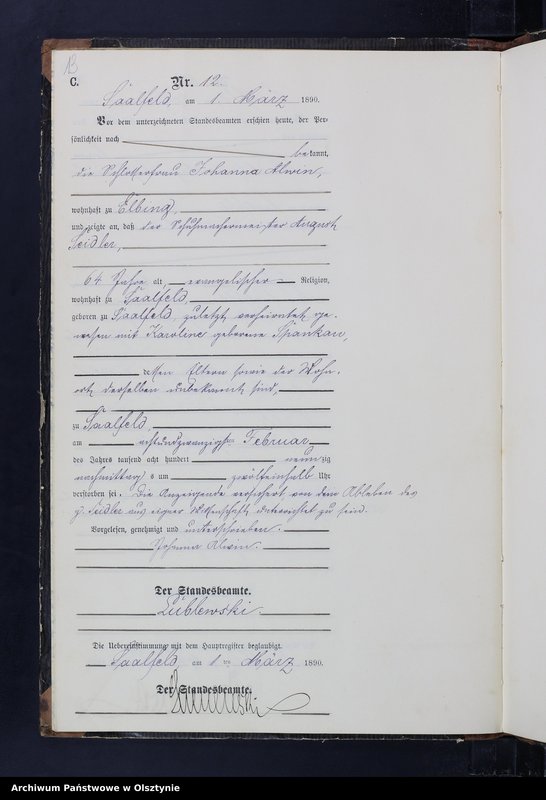 13
C.
Nr. 12.
Saalfeld, am 1. März 1890.
Vor dem unterzeichneten Standesbeamten erschien heute, der Per-
sönlichkeit nach
bekannt,
die Schlosserfrau Johanna Alwin,
wohnhaft zu Elbing,
und zeigte an, daß der Schuhmachermeister August
Seidler,
64 Jahre alt, evangelischer Religion,
wohnhaft zu Saalfeld,
geboren zu Saalfeld, zuletzt verheirathet ge-
wesen mit Karoline geborene Spankau,
dessen Eltern sowie der Wohn-
ort derselben unbekannt sind,
zu Saalfeld,
am achtundzwanzigsten Februar
des Jahres tausend acht hundert neunzig
nachmittags um zwölfeinhalb Uhr
verstorben sei. Die Anzeigende versichert, von dem Ableben des
p. Seidler aus eigner Wissenschaft unterrichtet zu sein.
Vorgelesen, genehmigt und unterschrieben.
Johanna Alwin.
Der Standesbeamte.
Lublewski.
Die Uebereinstimmung mit dem Hauptregister beglaubigt.
Saalfeld, am 1ten März 1890.
Der Standesbeamte.
Archiwum Państwowe w Olsztynie